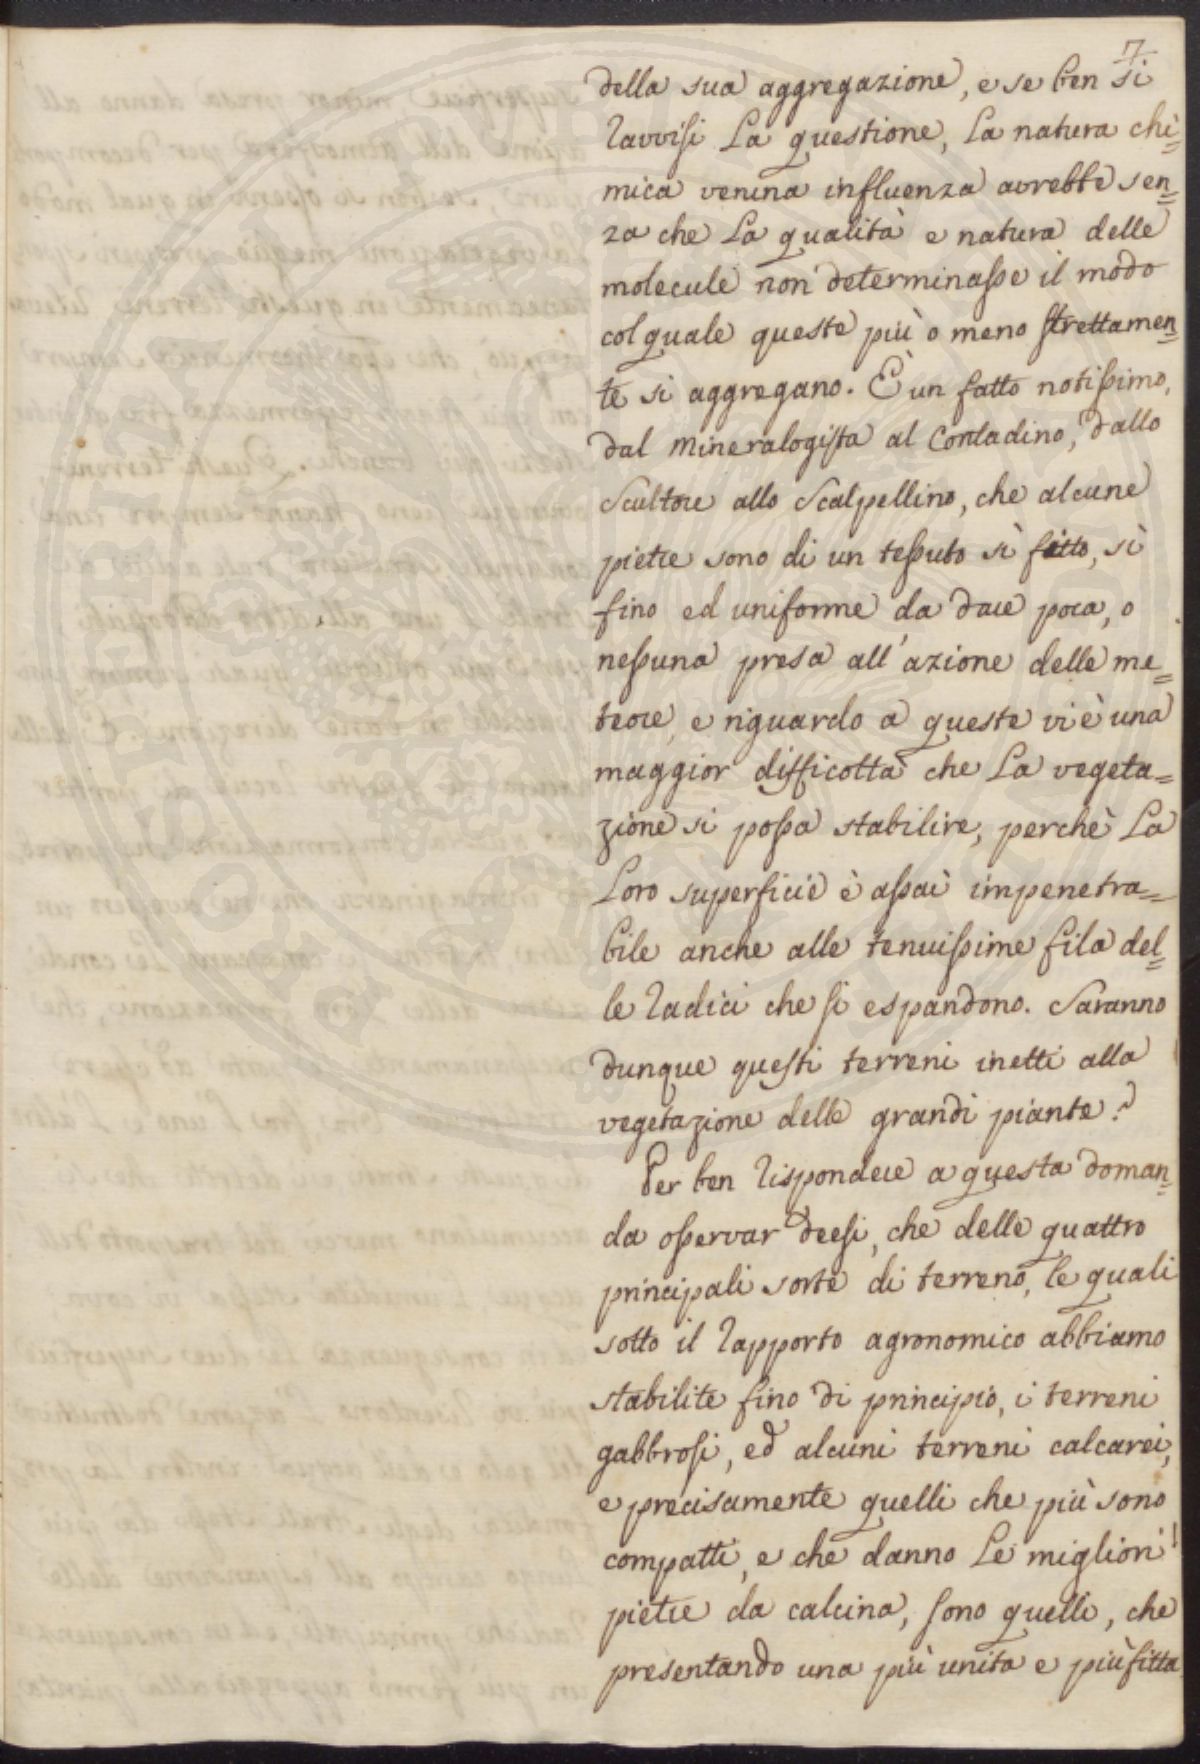 7
della sua aggregazione, e se ben si
ravvisi la questione, la natura chi=
mica veruna influenza avrebbe sen=
za che la qualità e natura delle
molecule non determinasse il modo
col quale queste più o meno strettamen=
te si aggregano. È un fatto notissimo,
dal mineralogista al Contadino, dallo
Scultore allo Scalpellino, che alcune
pietre sono di un tessuto sì fitto, sì
fino ed uniforme da dare poca, o
nessuna presa all'azione delle me=
teore, e riguardo a queste vi è una
maggior difficoltà che la vegeta=
zione si possa stabilire, perchè la
loro superficie è assai impenetra=
bile anche alle tenuissime fila del=
le radici che si espandono. Saranno
dunque questi terreni inetti alla
vegetazione delle grandi piante?
Per ben rispondere a questa doman=
da osservar deesi, che delle quattro
principali sorte di terreno, le quali
sotto il rapporto agronomico abbiamo
stabilite fino di principio, i terreni
gabbrosi, ed alcuni terreni calcarei,
e precisamente quelli che più sono
compatti, e che danno le migliori
pietre da calcina, sono quelli, che
presentando una più unita e più fitta